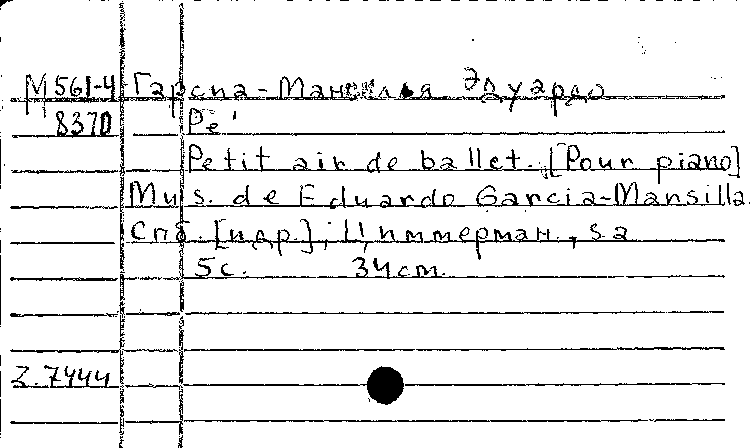 М 561-4 Гарсиа-Мансилья Эдуардо
8370 Pe'
Petit air de ballet. [Pour piano]
Mus. de Eduardo Garcia-Mansilla.
Спб. [и др.], Циммерман., s a
5 с. 34 cm.
3.7444